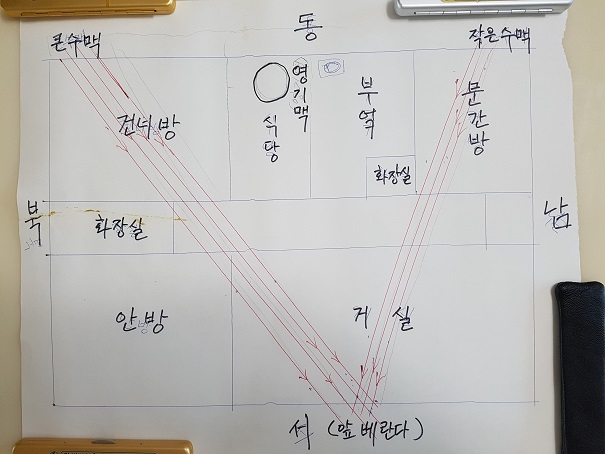 동
큰수맥
작은수맥
건너방
영기맥
식당
부엌
문간방
화장실
북
남
화장실
안방
거실
서 (앞베란다)